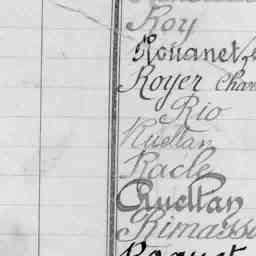 Roy
Rouanet
Royer Char
Rio
Ruellan
Racle
Ruellan
Rimasso
Roquet